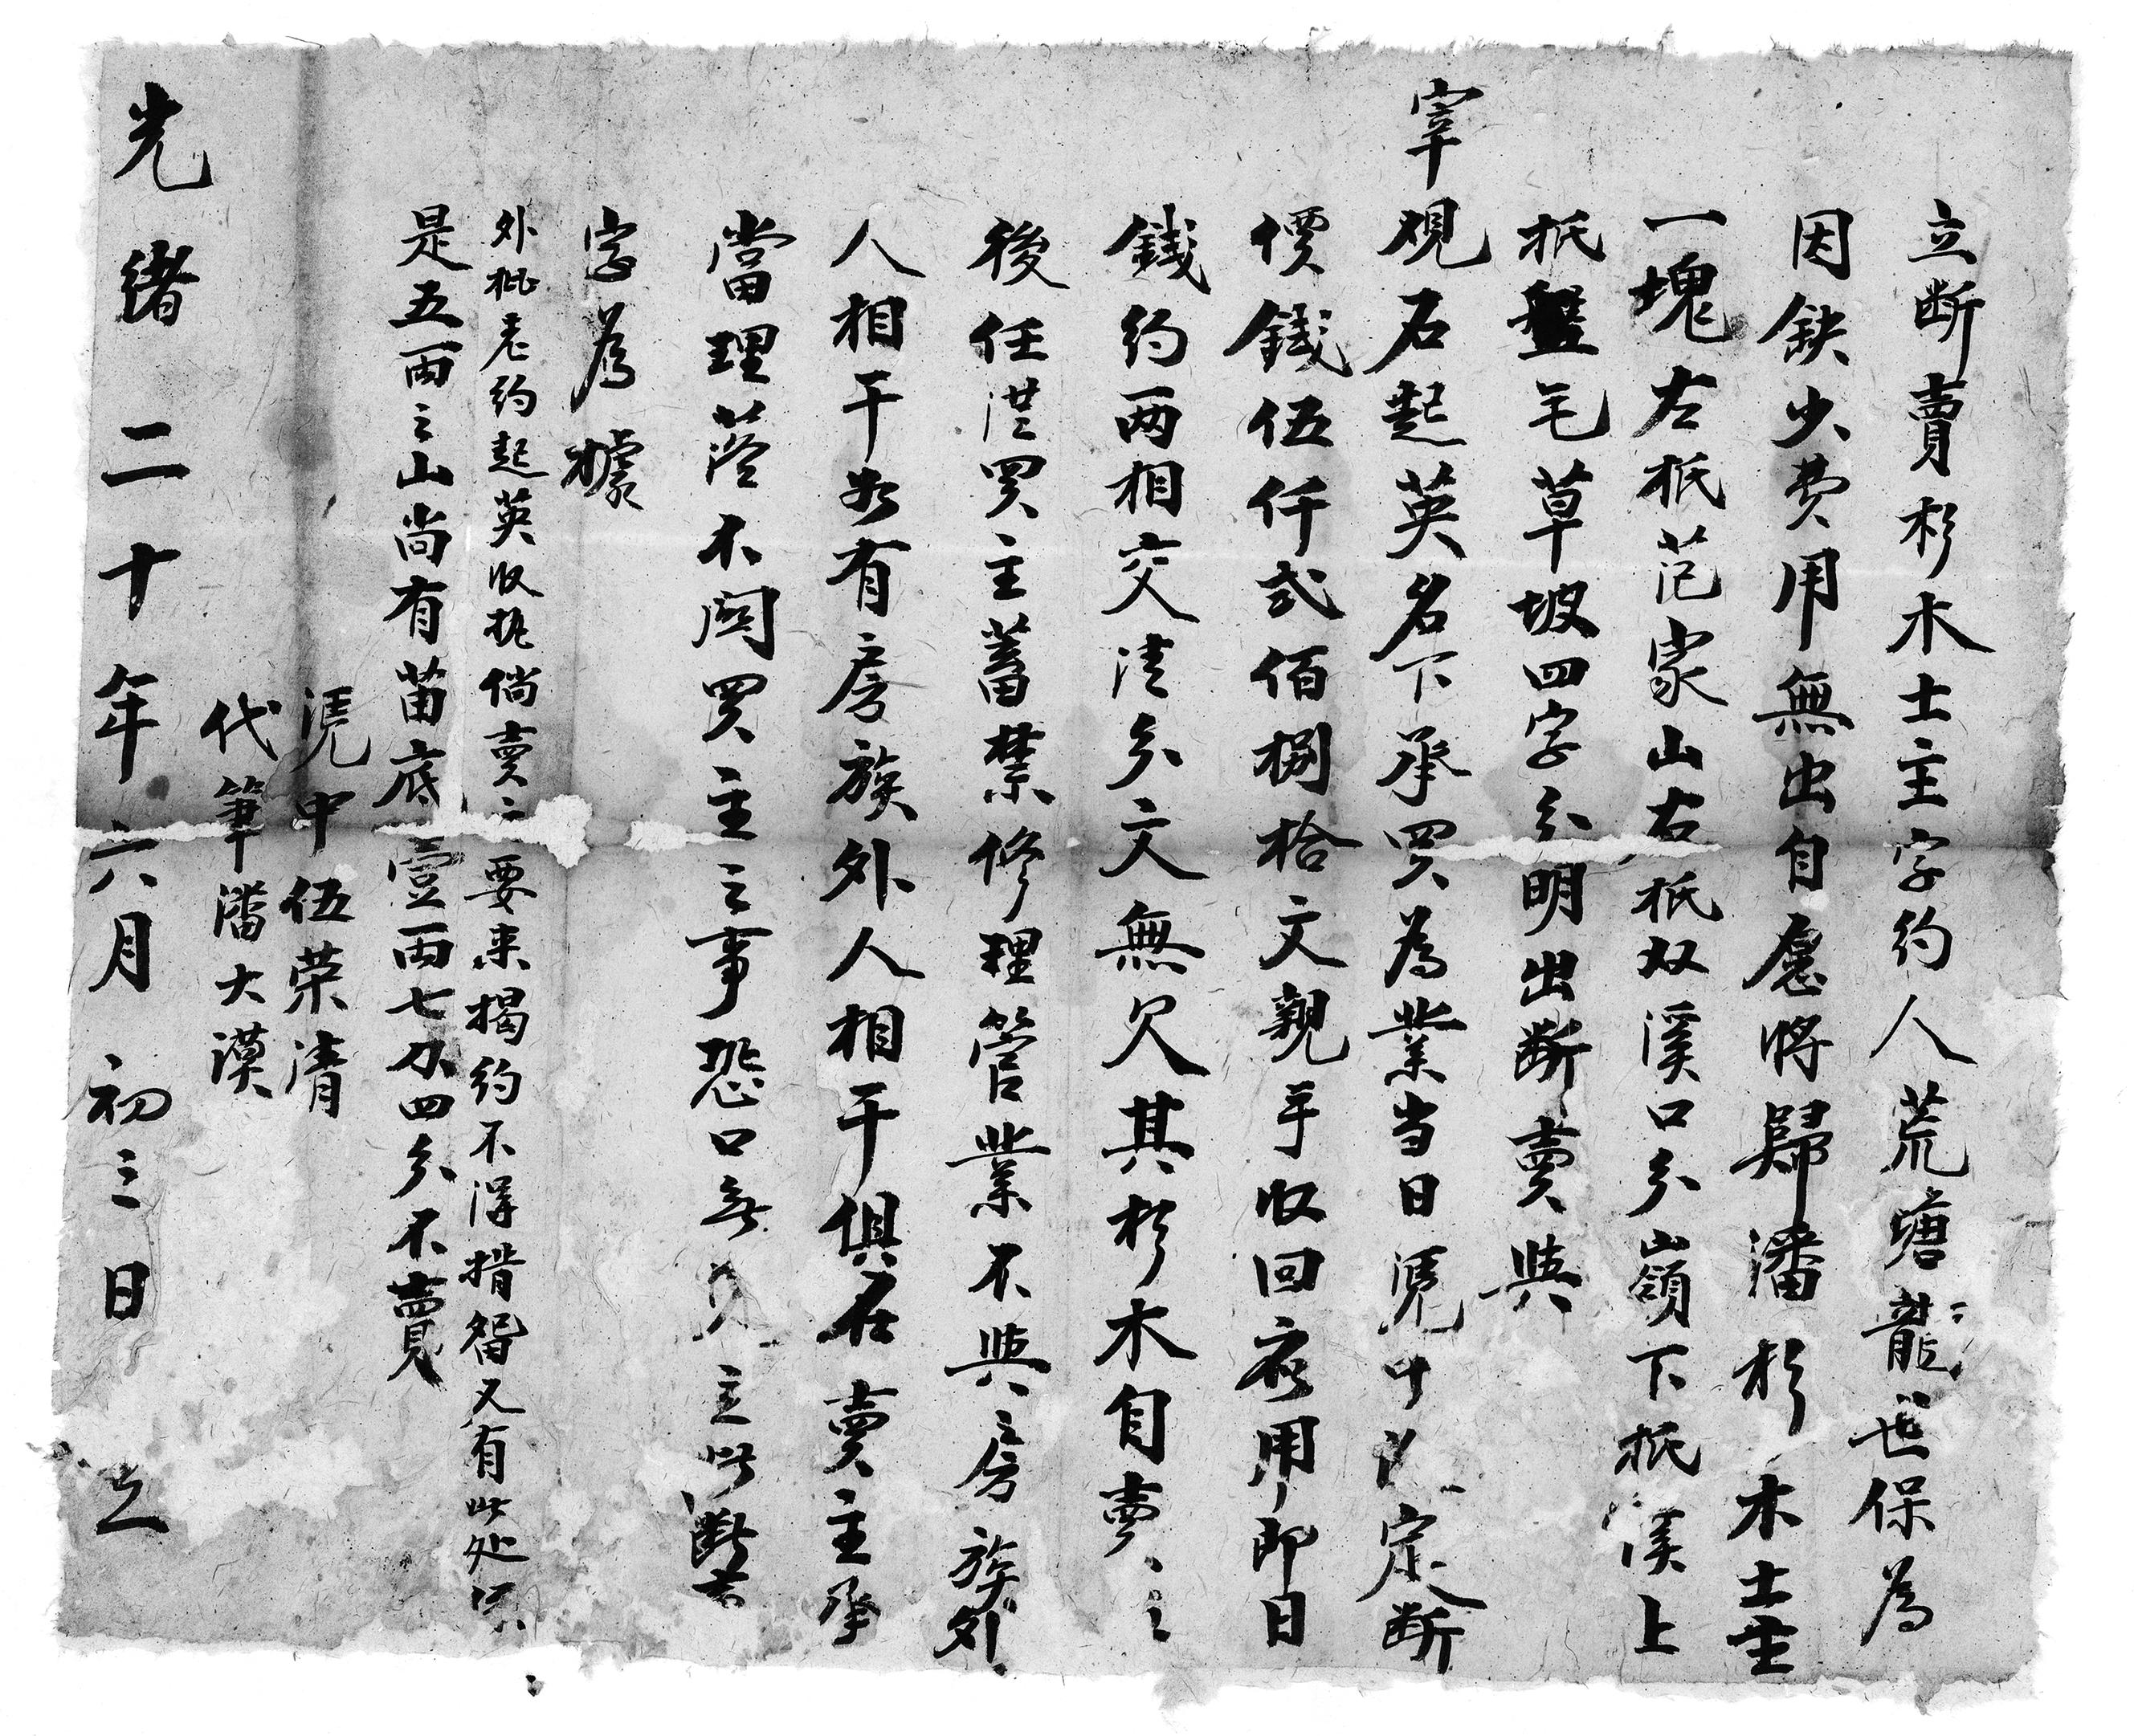 立断賣杉木士主字約人荒塘龍世保為
因缺少费用無出自愿將歸潘杉木士主
一塊左抵范家山右抵双溪口分嶺下抵溪上
抵盤毛草坡四字分明出断賣與
宰觀石起英名下承買為業当日憑中定断
價錢伍仟弍佰捌拾文親手收回衣用即日
錢約两相交清分文無欠其杉木自賣之
後任憑買主蓄禁修理管業不與房族外
人相干如有房族外人相干俱在賣主承
當理落不関買主之事恐口無立此断賣
字為據
外批老約起英收执倘賣之要来揭約不得措留又有此处
是五両之山尚有苗底壹両七分四分不賣
憑中伍荣清
代筆潘大漠
光緒二十年六月初三日立